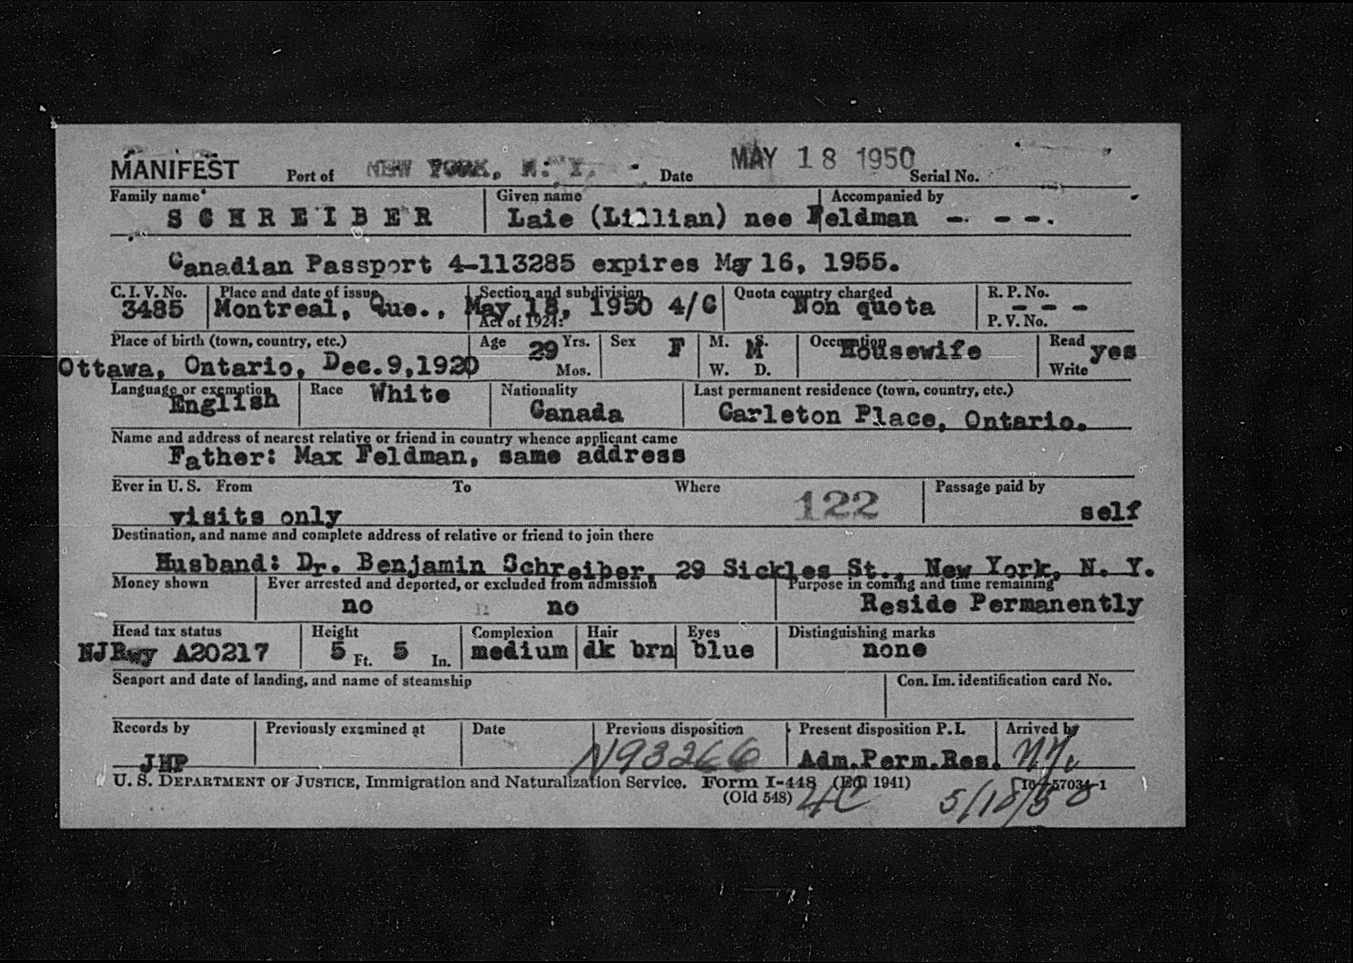 MANIFEST Port of NEW YORK, N. Y. Date MAY 18 1950 Serial No.
Family name Given name Accompanied by
SCHREIBER Laie (Lillian) nee Feldman - - -.
Canadian Passport 4-113285 expires May 16, 1955.
C. I. V. No. Place and date of issue Section and subdivision Quota country charged R. P. No.
3485 Montreal, Que., May 18, 1950 4/C Non quota - - -
Act of 1924: P. V. No.
Place of birth (town, country, etc.) Age 29 Yrs. Sex F M. S. M Occupation Housewife Read yes
Ottawa, Ontario, Dec.9,1920 Mos. W. D. Write
Language or exemption Race White Nationality Last permanent residence (town, country, etc.)
English Canada Carleton Place, Ontario.
Name and address of nearest relative or friend in country whence applicant came
Father: Max Feldman, same address
Ever in U. S. From To Where 122 Passage paid by
visits only self
Destination, and name and complete address of relative or friend to join there
Husband: Dr. Benjamin Schreiber, 29 Sickles St., New York, N. Y.
Money shown Ever arrested and deported, or excluded from admission Purpose in coming and time remaining
no no Reside Permanently
Head tax status Height Complexion Hair Eyes Distinguishing marks
NJRwy A20217 5 Ft. 5 In. medium dk brn blue none
Seaport and date of landing, and name of steamship Con. Im. identification card No.
Records by Previously examined at Date Previous disposition Present disposition P. I. Arrived by
JHP N93266 Adm.Perm.Res. N.Y.
U. S. DEPARTMENT OF JUSTICE, Immigration and Naturalization Service. Form I-448 1941)
(Old 548) 4C 5/18/50